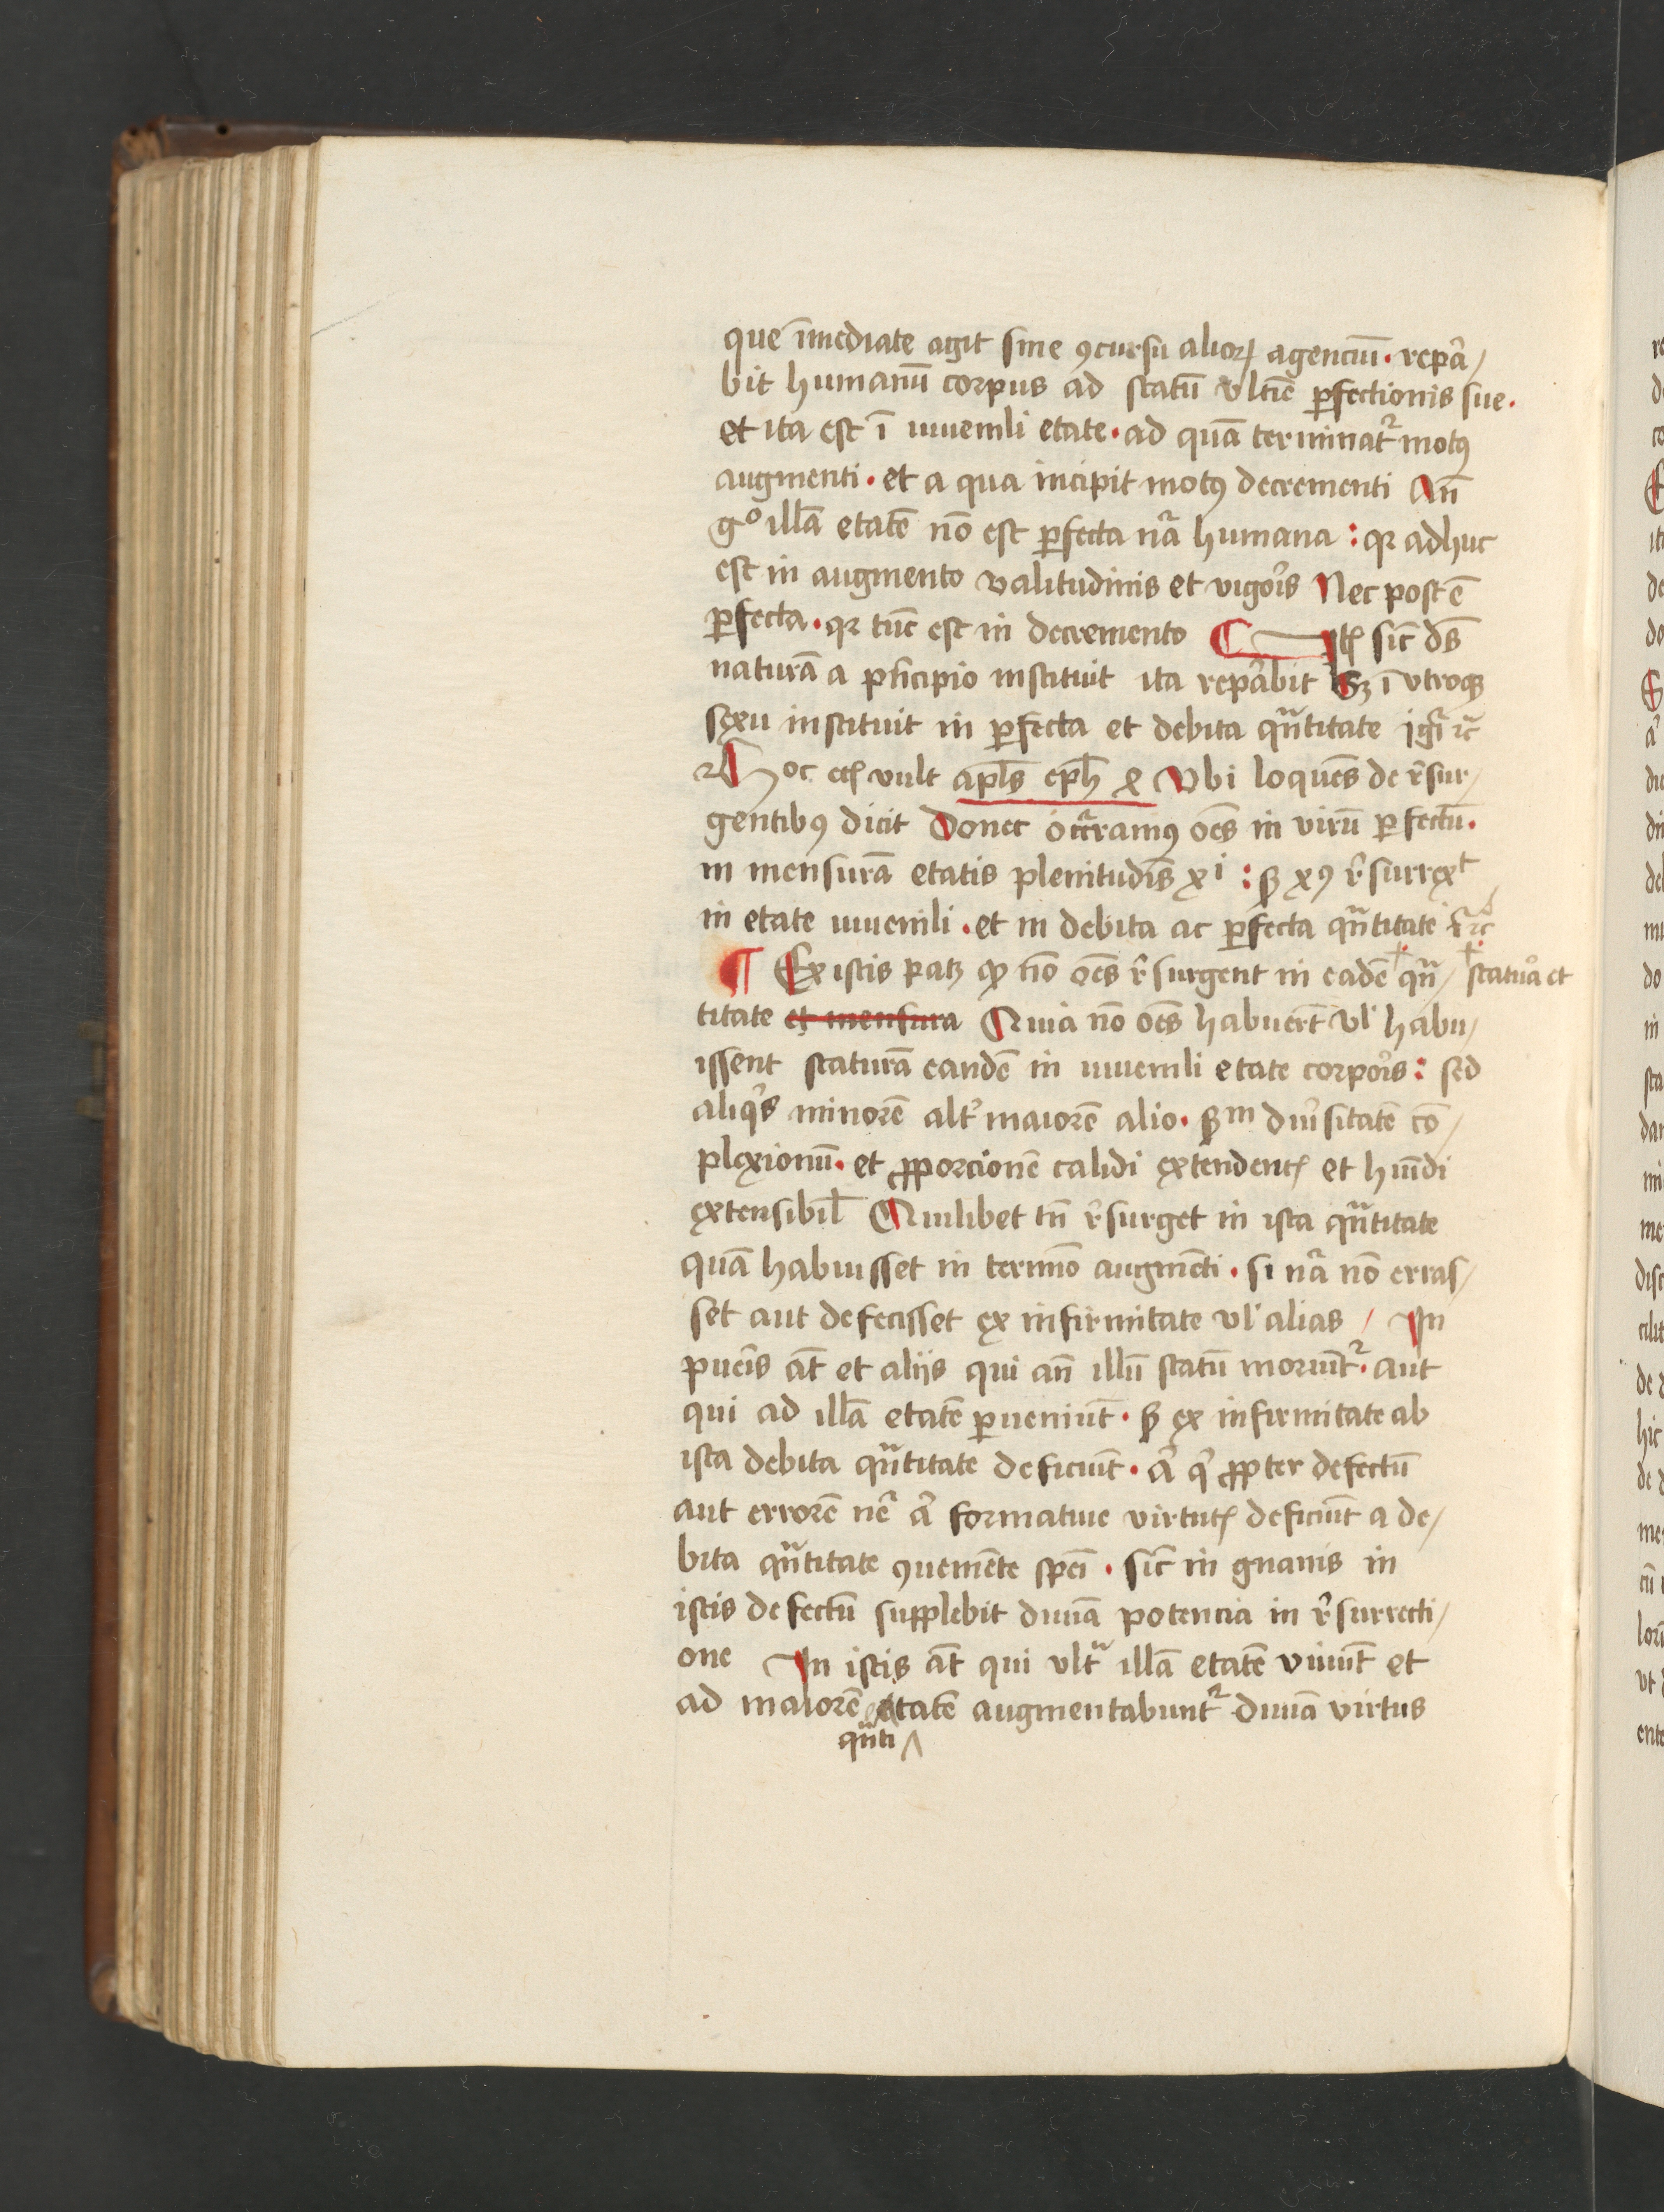 que īmediate agit sine ꝯcursu alioꝝ agenciū · repa᷑/
bit humanū corpus ad statū vltīe ꝑfectionis sue ·
et ita est ī iuuenili etate · ad quā terminatᷣ motꝰ
augmenti · et a qua incipit motꝰ decrementi An̄
gͦ illā etatē nō est ꝑfecta nr̄a humana : qꝛ adhuc
est in augmento valitudinis et vigoꝛ᷑s Nec post ē
ꝑfecta · qꝛ tūc est in decremento ¶ Itꝭ sic̄ ds̄
naturā a pͥncipio instituit ita repa᷑bit Sꝫ ī vtroqꝫ
sexu instituit in ꝑfecta et debita qᷓntitate igr̄ ⁊c̄
Hoc ecꝭ vult apls̄ eph̄ 4 Vbi loquēs de r᷑sur/
gentibꝰ dicit Donec occᷓramꝰ oēs in virū ꝑfectū ·
in mensurā etatis plenitudīs xͥ : sꝫ xꝰ r᷑surrexͭ
in etate iuuenili · et in debita ac ꝑfecta qᷓntitate g᷑ ⁊c̄
¶ Ex istis patꝫ ꝙ nō oēs r᷑surgent in eadē ☩ qᷓn/ ☩ statura et
titate et mensura Quia nō oēs habuerūt vl' habu/
issent staturā eandē in iuuenili etate corpoꝛ᷑s : sed
aliqͥs minorē altᷣ maiorē alio · sꝫᵐ diu᷑sitatē cō/
plexionū · et ꝓporcionē calidi extendentꝭ et hūidi
extensibil̄ Quilibet tn̄ r᷑surget in ista qᷓntitate
quā habuisset in termīo augmēti · si nr̄a nō erras/
set aut defecisset ex infirmitate vl' alias / In
pueris āt et aliis qui an̄ illū statū moriūtᷣ · aut
qui ad illā etatē ꝑueniūt · sꝫ ex infirmitate ab
ista debita qᷓntitate deficiūt · a᷑ qͥ ꝓpter defectū
aut errorē ne᷑ a᷑ formatiue virtutꝭ deficiūt a de/
bita qᷓntitate ꝯueniēte spēi · sic̄ in gnanis in
istis defectū supplebit diuīa potencia in r᷑surrecti/
one In istis āt qui vltᷓ illā etatē viuūt et
ad maiorē etatē augmentabuntᷣ diuīa virtus
qᷓnti ^